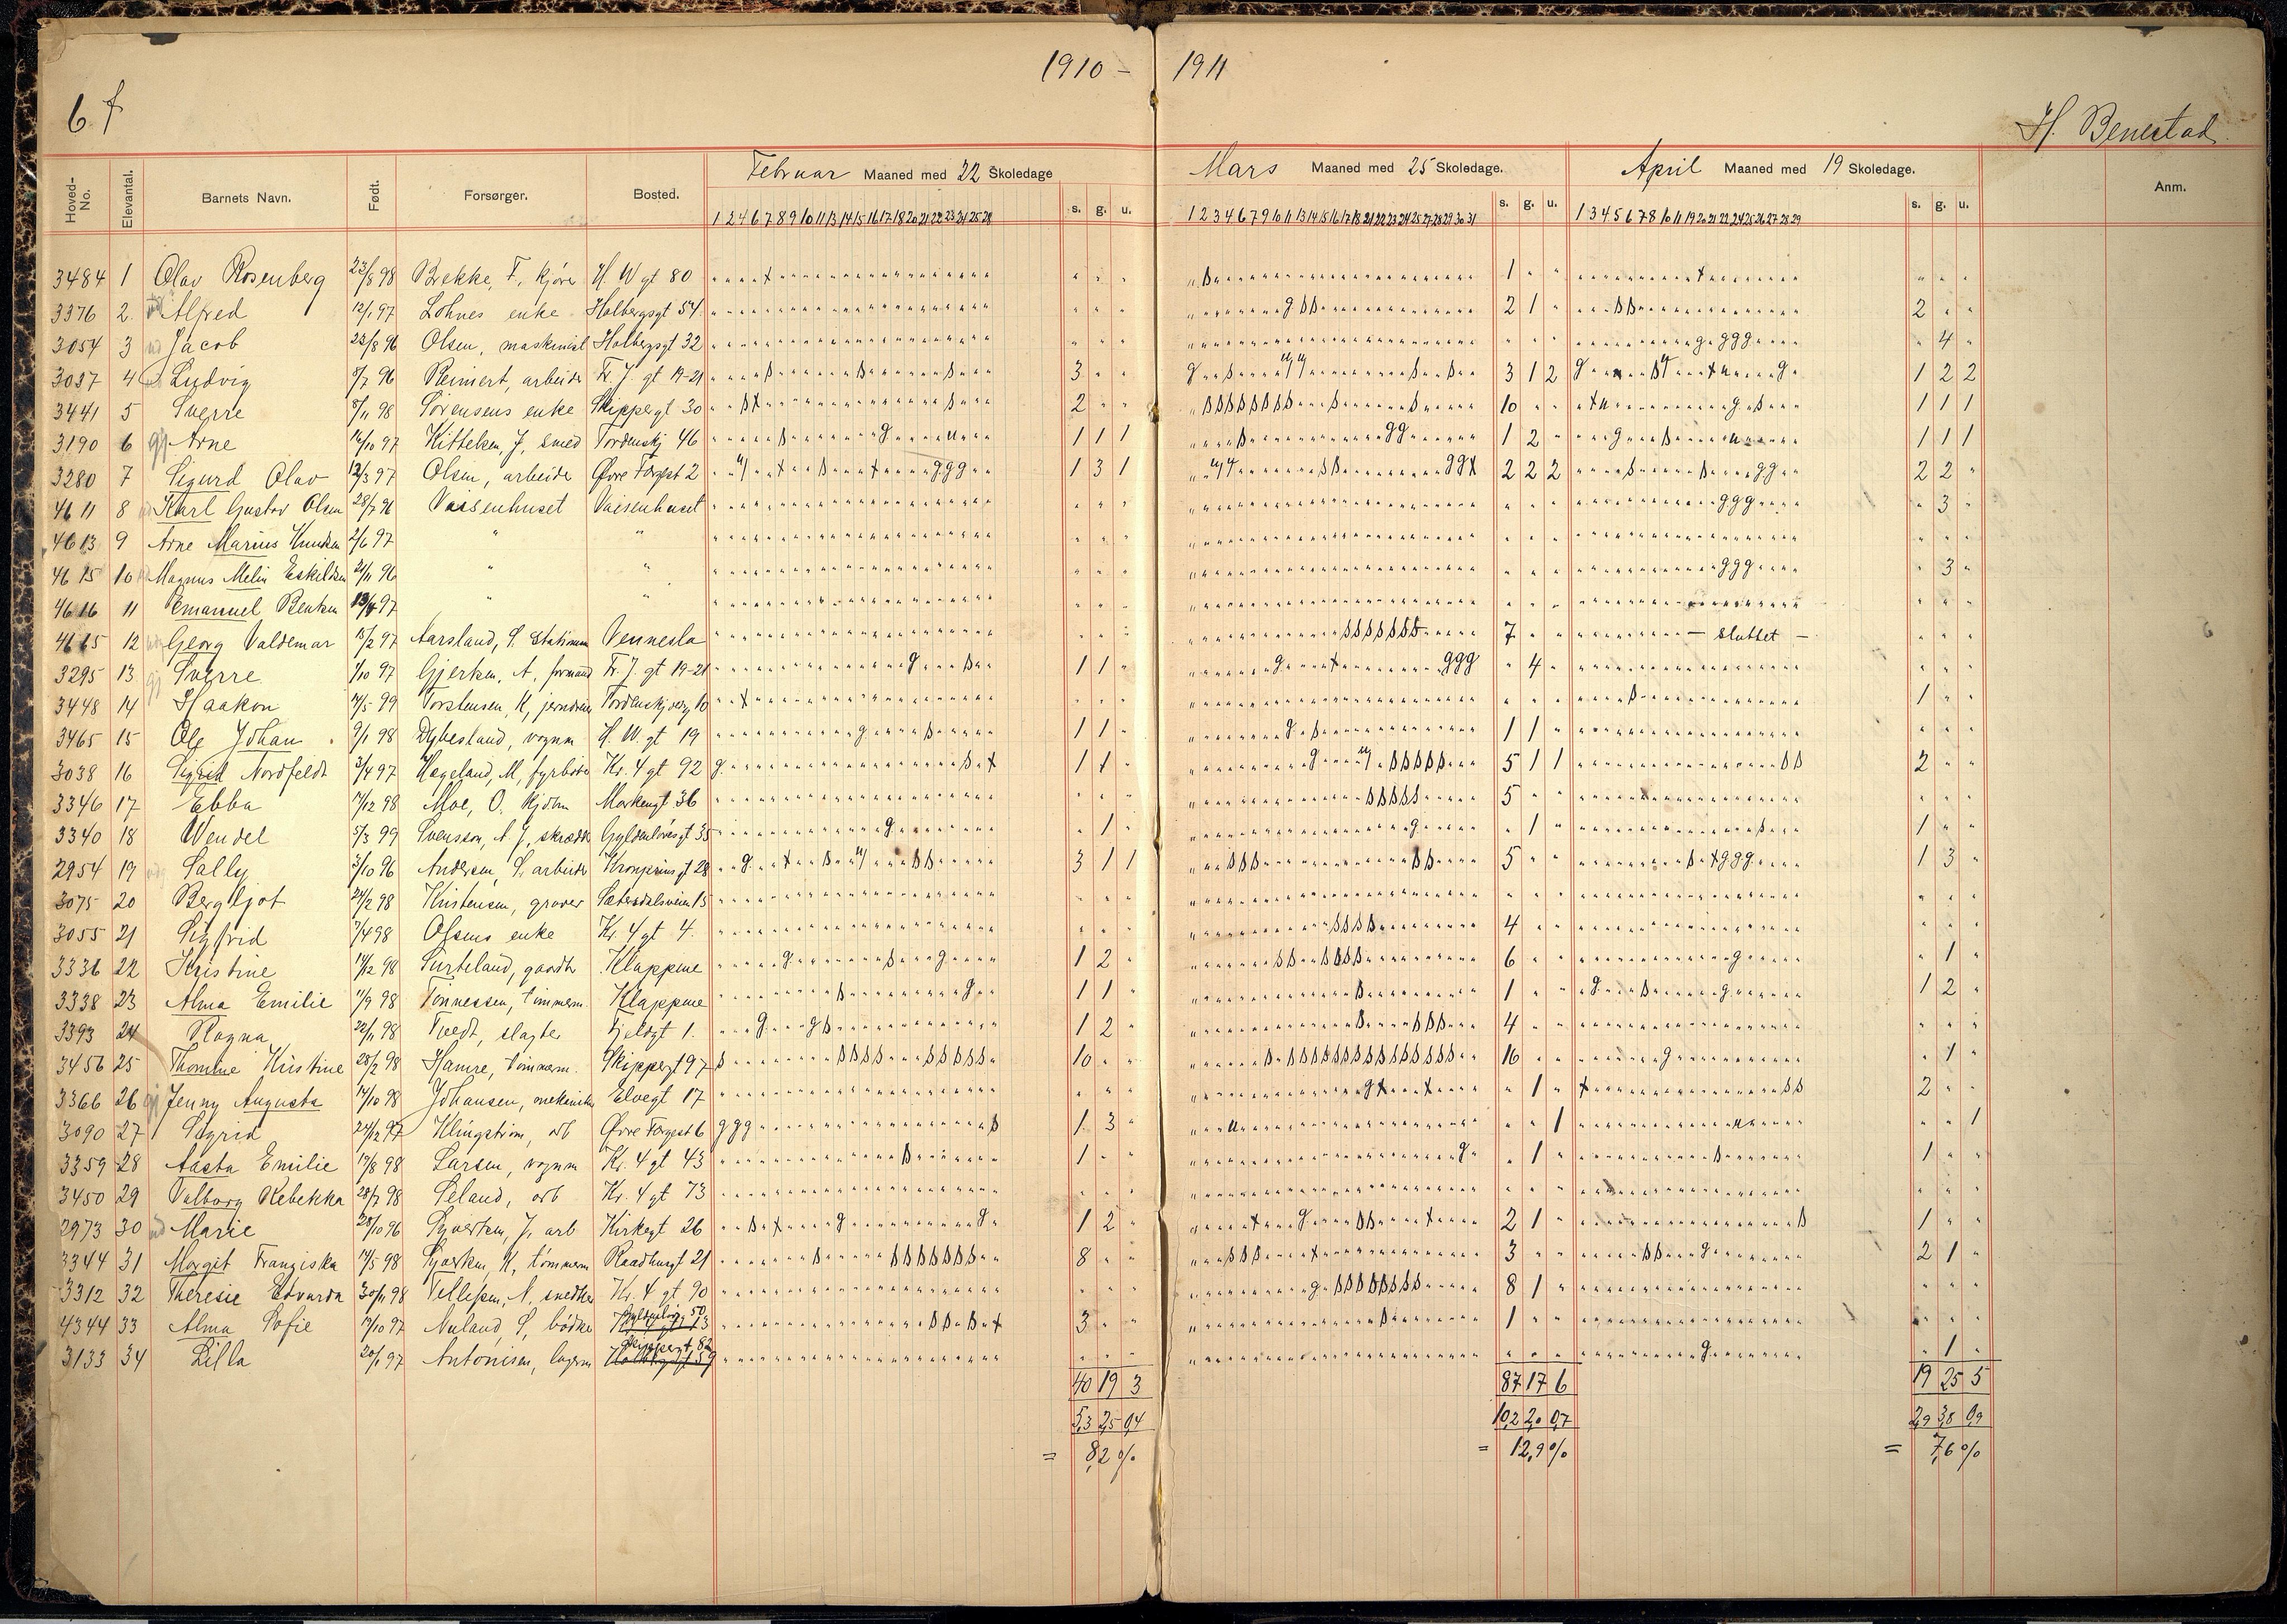 1910 – 1911
6 f
H. Benestad.
Hoved-No. Elevantal. Barnets Navn. Født. Forsørger. Bosted. Februar Maaned med 22 Skoledage s. g. u. Mars Maaned med 25 Skoledage. s. g. u. April Maaned med 19 Skoledage. s. g. u. Anm.
1 2 4 6 7 8 9 10 11 13 14 15 16 17 18 20 21 22 23 24 25 28 1 2 3 4 6 7 9 10 11 13 14 15 16 17 18 21 22 23 24 25 27 28 29 30 31 1 3 4 5 6 7 8 10 11 19 20 21 22 24 25 26 27 28 29
3484 1 Olav Rosenberg 23/8 98 Brekke, F. kjører H. W gt 80 1
3376 2. Alfred 12/1 97 Lohnes enke Holbergsgt 54. 2 1 2
3054 3 Jacob 23/8 96 Olsen, maskinist Holbergsgt 32 4
3037 4 Ludvig 3/7 96 Reinert, arbeider Fr. J. gt 19-21 3 3 1 2 1 2 2
3441 5 Sverre 8/11 98 Sørensens enke Skippergt 30 2 10 1 1 1
3190 6 Arne 16/10 97 Kittelsen, J, smed Tordenskj 46 1 1 1 1 2 1 1 1
3280 7 Sigurd Olav 12/3 97 Olsen, arbeider Øvre Torvgst 2 1 3 1 2 2 2 2 2
4611 8 Karl Gustav Olsen 28/7 96 Vaisenhuset Vaisenhuset 3
4613 9 Arne Marius Knudsen 2/6 97 " "
4615 10 Magnus Melin Eskildsen 21/11 96 " " 3
4616 11 Emanuel Bentsen 13/4 97 " "
4665 12 Georg Valdemar 15/2 97 Aarsland, S. Stationsm Vennesla 7 – sluttet –
3295 13 Sverre 1/10 97 Gjertsen, A, formand Fr. J. gt 19-21 1 1 4
3448 14 Haakon 14/5 99 Torstensen, K, jerndreier Tordenskj 10 1
3465 15 Ole Johan 9/1 98 Dybesland, vognm H. W. gt 19 1 1 1 1
3038 16 Sigrid Nordfeldt 3/4 97 Hageland, M, fyrbøder Kr. 4 gt 92 1 1 5 1 1 2
3346 17 Ebba 17/12 98 Moe, O. kjøbm Markensgt 36 5
3340 18 Wendel 5/3 99 Svensson, A. J, skrædder Gyldenløvesgt 35 1 1 1
2954 19 Sally 3/10 96 Andersen, S. arbeider Kronprinsgt 28 3 1 1 5 1 3
3075 20 Bergljot 24/2 98 Kristensen, graver Sætersdalsveien 15
3055 21 Sigfrid 7/4 98 Olsens enke Kr. 4 gt 4. 4
3336 22 Kristine 14/12 98 Surteland, gaardbr Klappene 1 2 6 1
3338 23 Alma Emilie 11/9 98 Tønnessen, tømmerm. Klappene 1 1 1 1 2
3393 24 Ragna 22/11 98 Tvedt, slagter 1. 1 2 4
3456 25 Thomine Kristine 28/2 98 Hamre, tømmerm. Skippergt 97 10 16 1
3366 26 Jenny Augusta 14/10 98 Johansen, mekaniker Elvegt 17 1 2
3090 27 Sigrid 24/12 97 Klingstrøm, arb Øvre Torvgst 6 1 3 1 1
3359 28 Aasta Emilie 19/8 98 Larsen, vognm Kr. 4 gt 43 1 1 1
3450 29 Valborg Rebekka 28/7 98 Leland, arb Kr. 4 gt 73
2973 30 Marie 28/10 96 Syvertsen, J. arb Kirkegt 26 1 2 2 1 1
3344 31 Margit Franziska 14/5 98 Syvertsen, K, tømmerm Raadhusgt 21 8 3 2 1
3312 32 Theresie Edvarda 30/11 98 Tellefsen, A, snedker Kr. 4 gt 90 8 1
4344 33 Alma Sofie 17/10 97 Auland, S, bødker Gyldenløvsg 50 3 1
3133 34 Lilla 20/1 97 Antonisen, lagerm Skippergt 82 1
40 19 3 87 17 6 19 25 5
5,3 2,5 0,4 10,2 2,0 0,7 2,9 3,8 0,9
= 8,2 % = 12,9 % = 7,6 %